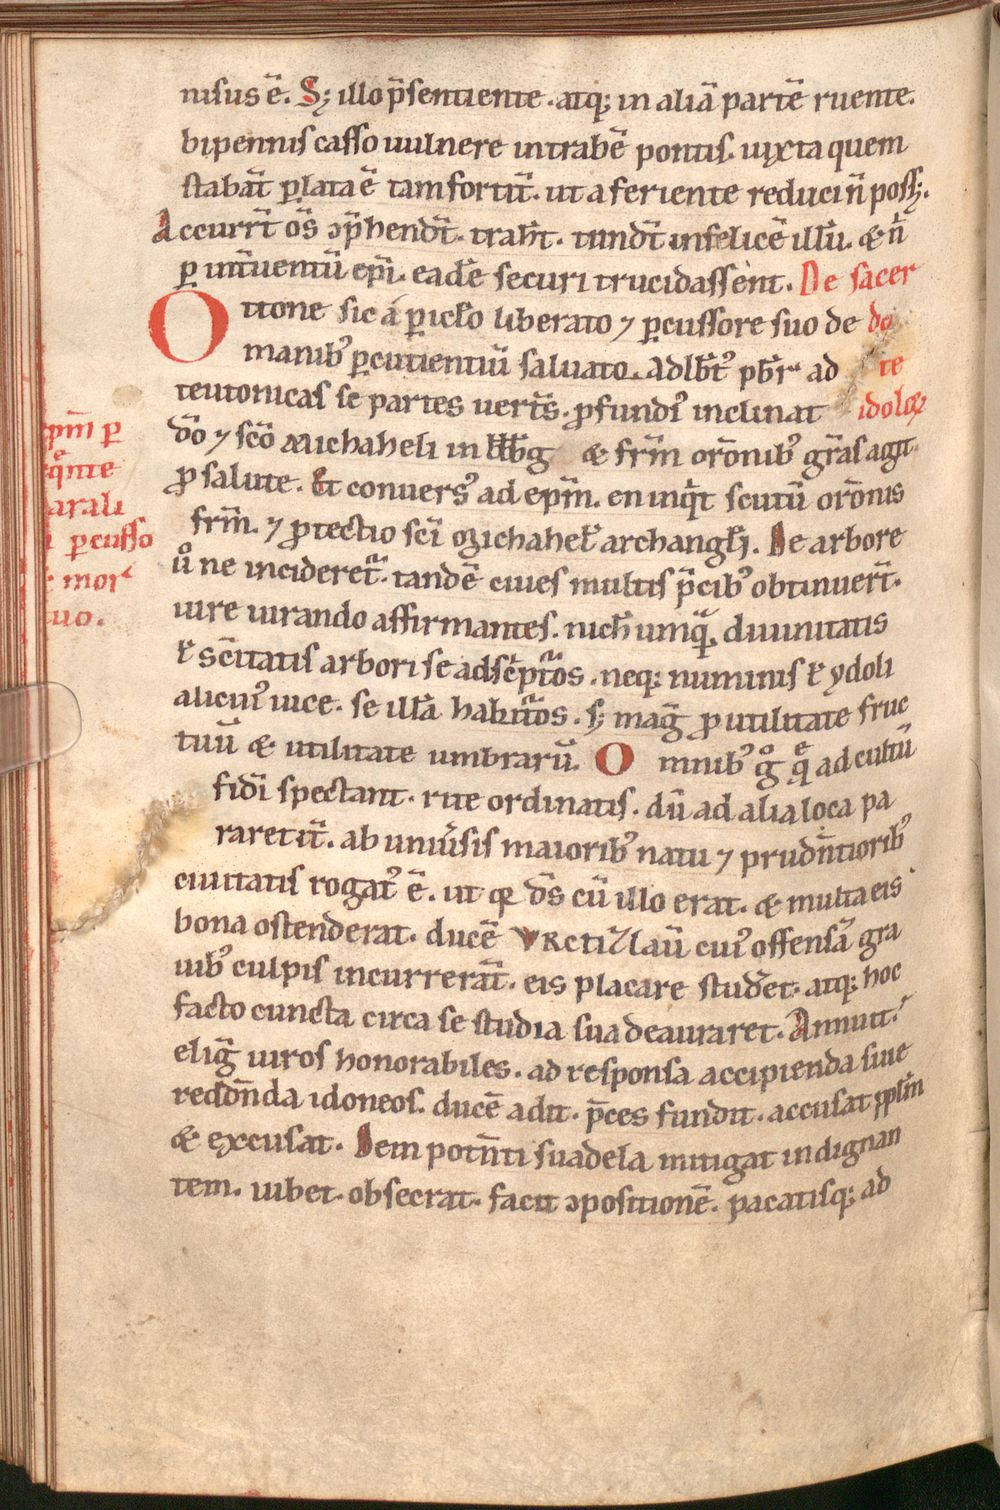 nisus ē. S; illo p̄sentiente. atq; in aliā partē ruente.
bipennis casso uulnere in trabē pontis. iuxta quem
stabāt ꝑlata ē tam fortit̄. ut a feriente reduci n̄ poss;.
Accurrt̄ om̄s ↄp̄hendt̄. traht̄. tundt̄ infelicē illū. & n̄
ꝑ int̄uentū epī. eadē securi trucidassent. De sacer
Ottone sic a ꝑicło liberato ⁊ ꝑcussore suo de do
manibꝰ ꝑcutientiū saluato. Adlb̄tꝰ pbr̄ ad te
teutonicas se partes uert̄s. ꝓfundiꝰ inclinat idoloꝝ
dō ⁊ sc̄o michaheli in bbg & frm̄ or̄onibꝰ gr̄as agit
ꝓ salute. Et conuersꝰ ad epm̄. en inqͥt scutū or̄onis
frm̄. ⁊ ꝓtectio sc̄i michahel̄ archangłi. De arbore
ů ne incideretᷣ. tandē ciues multis p̄cibꝰ obtinuert̄.
iure iurando affirmantes. nich̄ umqᷓ. diuinitatis
ł sc̄itatis arbori se adsc̄ptᷣos. neq; numinis ł ydoli
alicuiꝰ uice. se illā habitᷣos. s; mag̃ ꝓ utilitate fruc
tuū & utilitate umbrarū. Omnibꝰ g̊ q̄ ad cultū
fidi spectant. rite ordinatis. dū ad alia loca pa
raret it̄. ab uniūsis maioribꝰ natu ⁊ prudn̄tioribꝰ
ciuitatis rogatꝰ ē. ut qꝛ dn̄s cū illo erat. & multa eis
bona ostenderat. ducē VRCtizlaū cuiꝰ offensā gra
uibꝰ culpis incurrerāt. eis placare studet. atq; hoc
facto cuncta circa se studia sua deauraret. Annuit.
elig̃ uiros honorabiles. ad responsa accipienda siue
reddn̄da idoneos. ducē adit. p̄ces fundit. accusat pplm̄
& excusat. Dem potn̄ti suadela mitigat indignan
tem. iubet. obsecrat. facit ↄpositionē. pacatisq; ad
pm̄ ꝑ
qͤnte
arali
ꝑcusso
mor
uo.